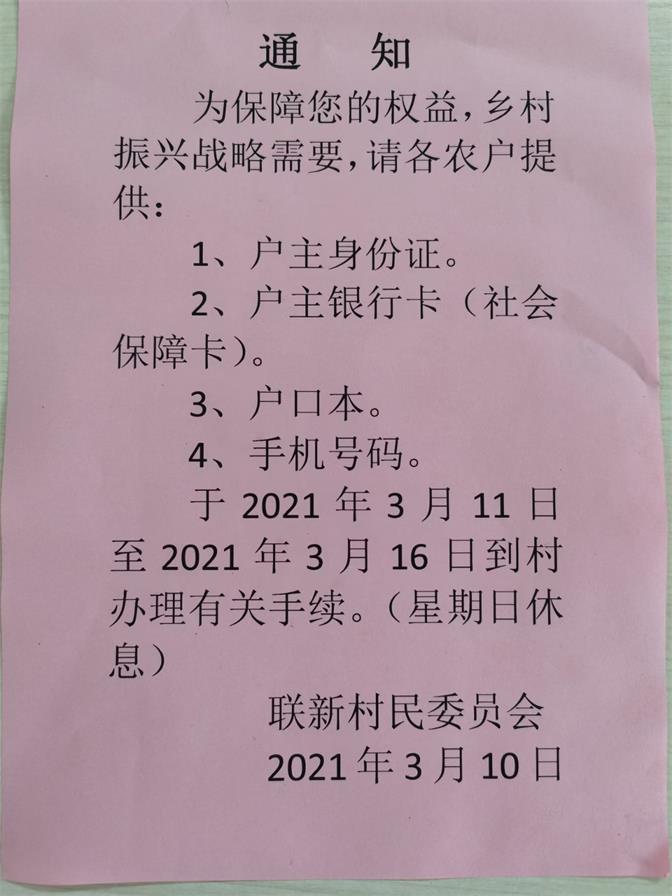 通 知
为保障您的权益，乡村
振兴战略需要，请各农户提
供：
1、户主身份证。
2、户主银行卡（社会
保障卡）。
3、户口本。
4、手机号码。
于 2021 年 3 月 11 日
至 2021 年 3 月 16 日到村
办理有关手续。（星期日休
息）
联新村民委员会
2021 年 3 月 10 日